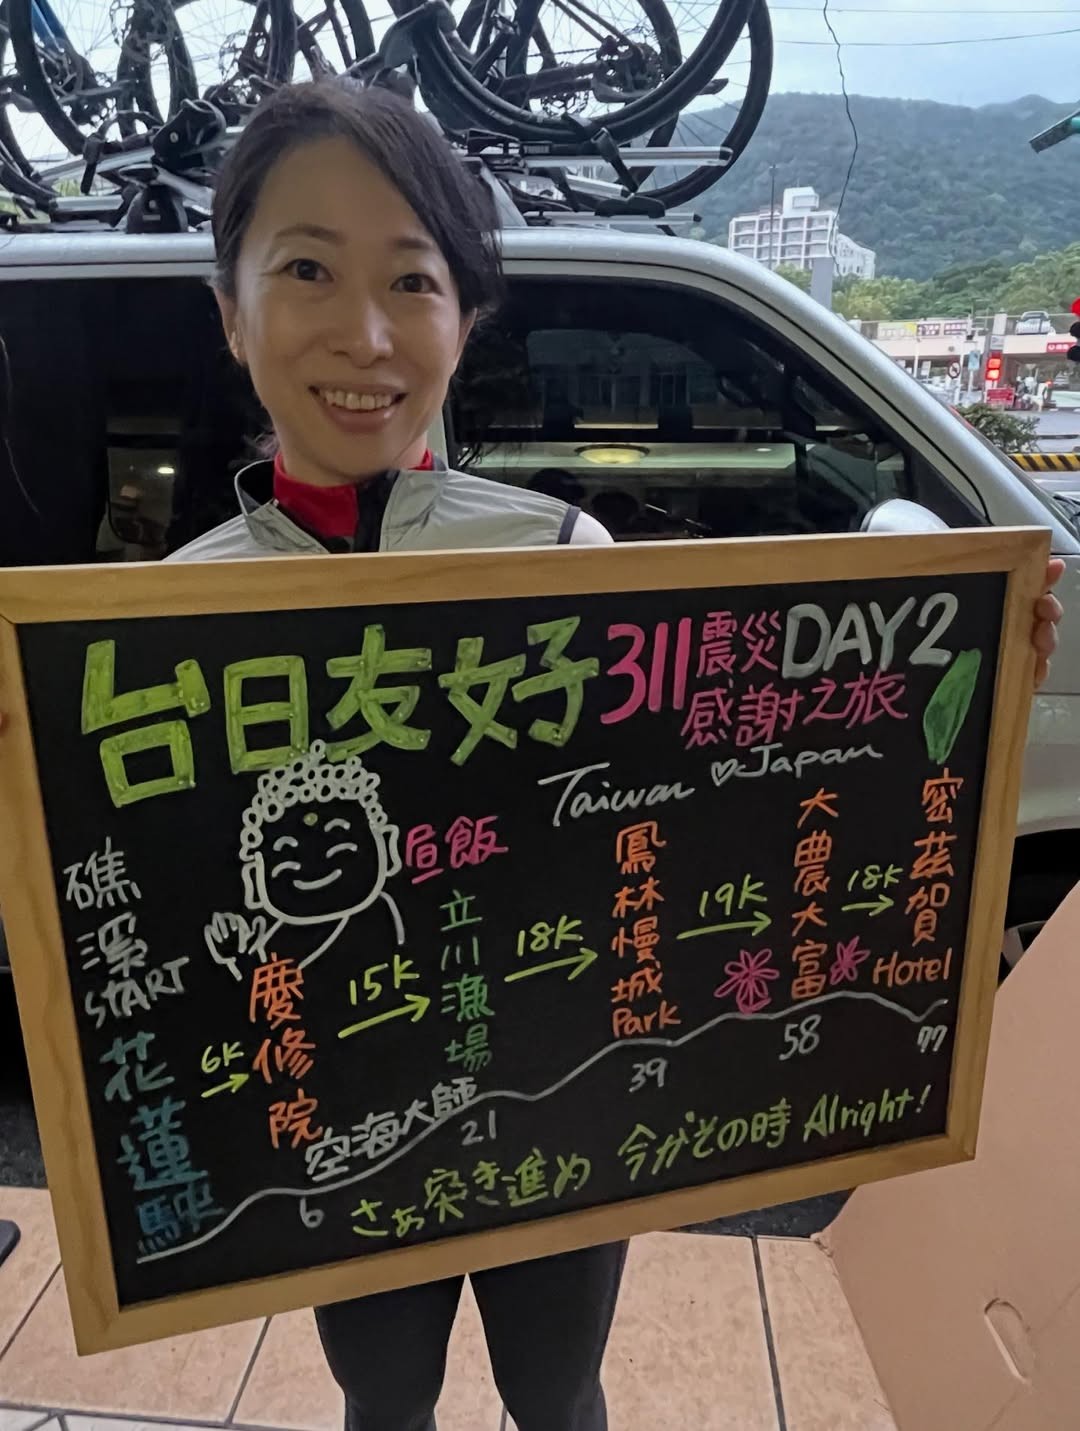 台日友好 311震災 DAY2
感謝之旅
Taiwan ♡ Japan
礁溪
START
花蓮駅
6K →
慶修院
空海大師
15K →
昼飯
立川漁場
18K →
鳳林慢城
Park
19K →
大農大富
18K →
密茲賀
Hotel
6
21
39
58
77
さぁ突き進め 今がその時 Alright!